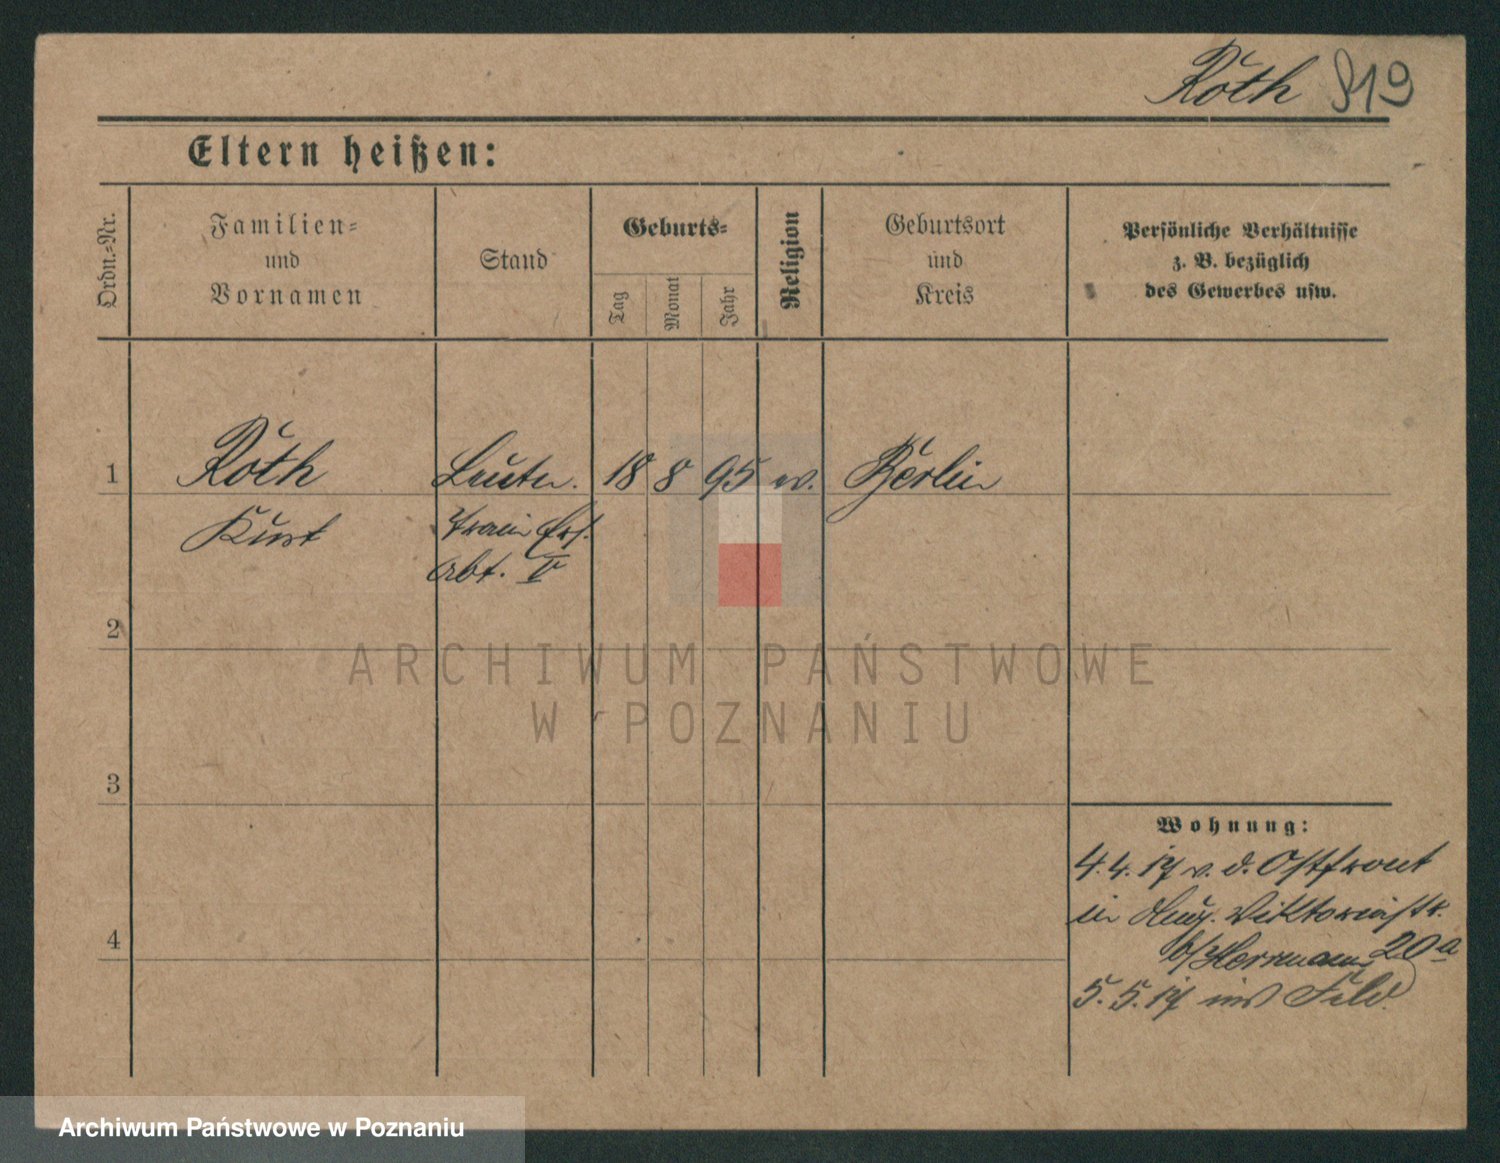 Roth 919
Eltern heißen:
Ordn.-Nr.
Familien-
und
Vornamen
Stand
Geburts-
Tag
Monat
Jahr
Religion
Geburtsort
und
Kreis
Persönliche Verhältnisse
z. B. bezüglich
des Gewerbes usw.
1
Roth
Leutn.
18
8
95
ev.
Berlin
Kurt
Train Ers.
Abt. V
2
ARCHIWUM PAŃSTWOWE
W POZNANIU
3
Wohnung:
4.4.17 v. d. Ostfront
in Aug. Viktoriastr.
b/Herrmann 20a
5.5.17 ins Feld
4
Archiwum Państwowe w Poznaniu